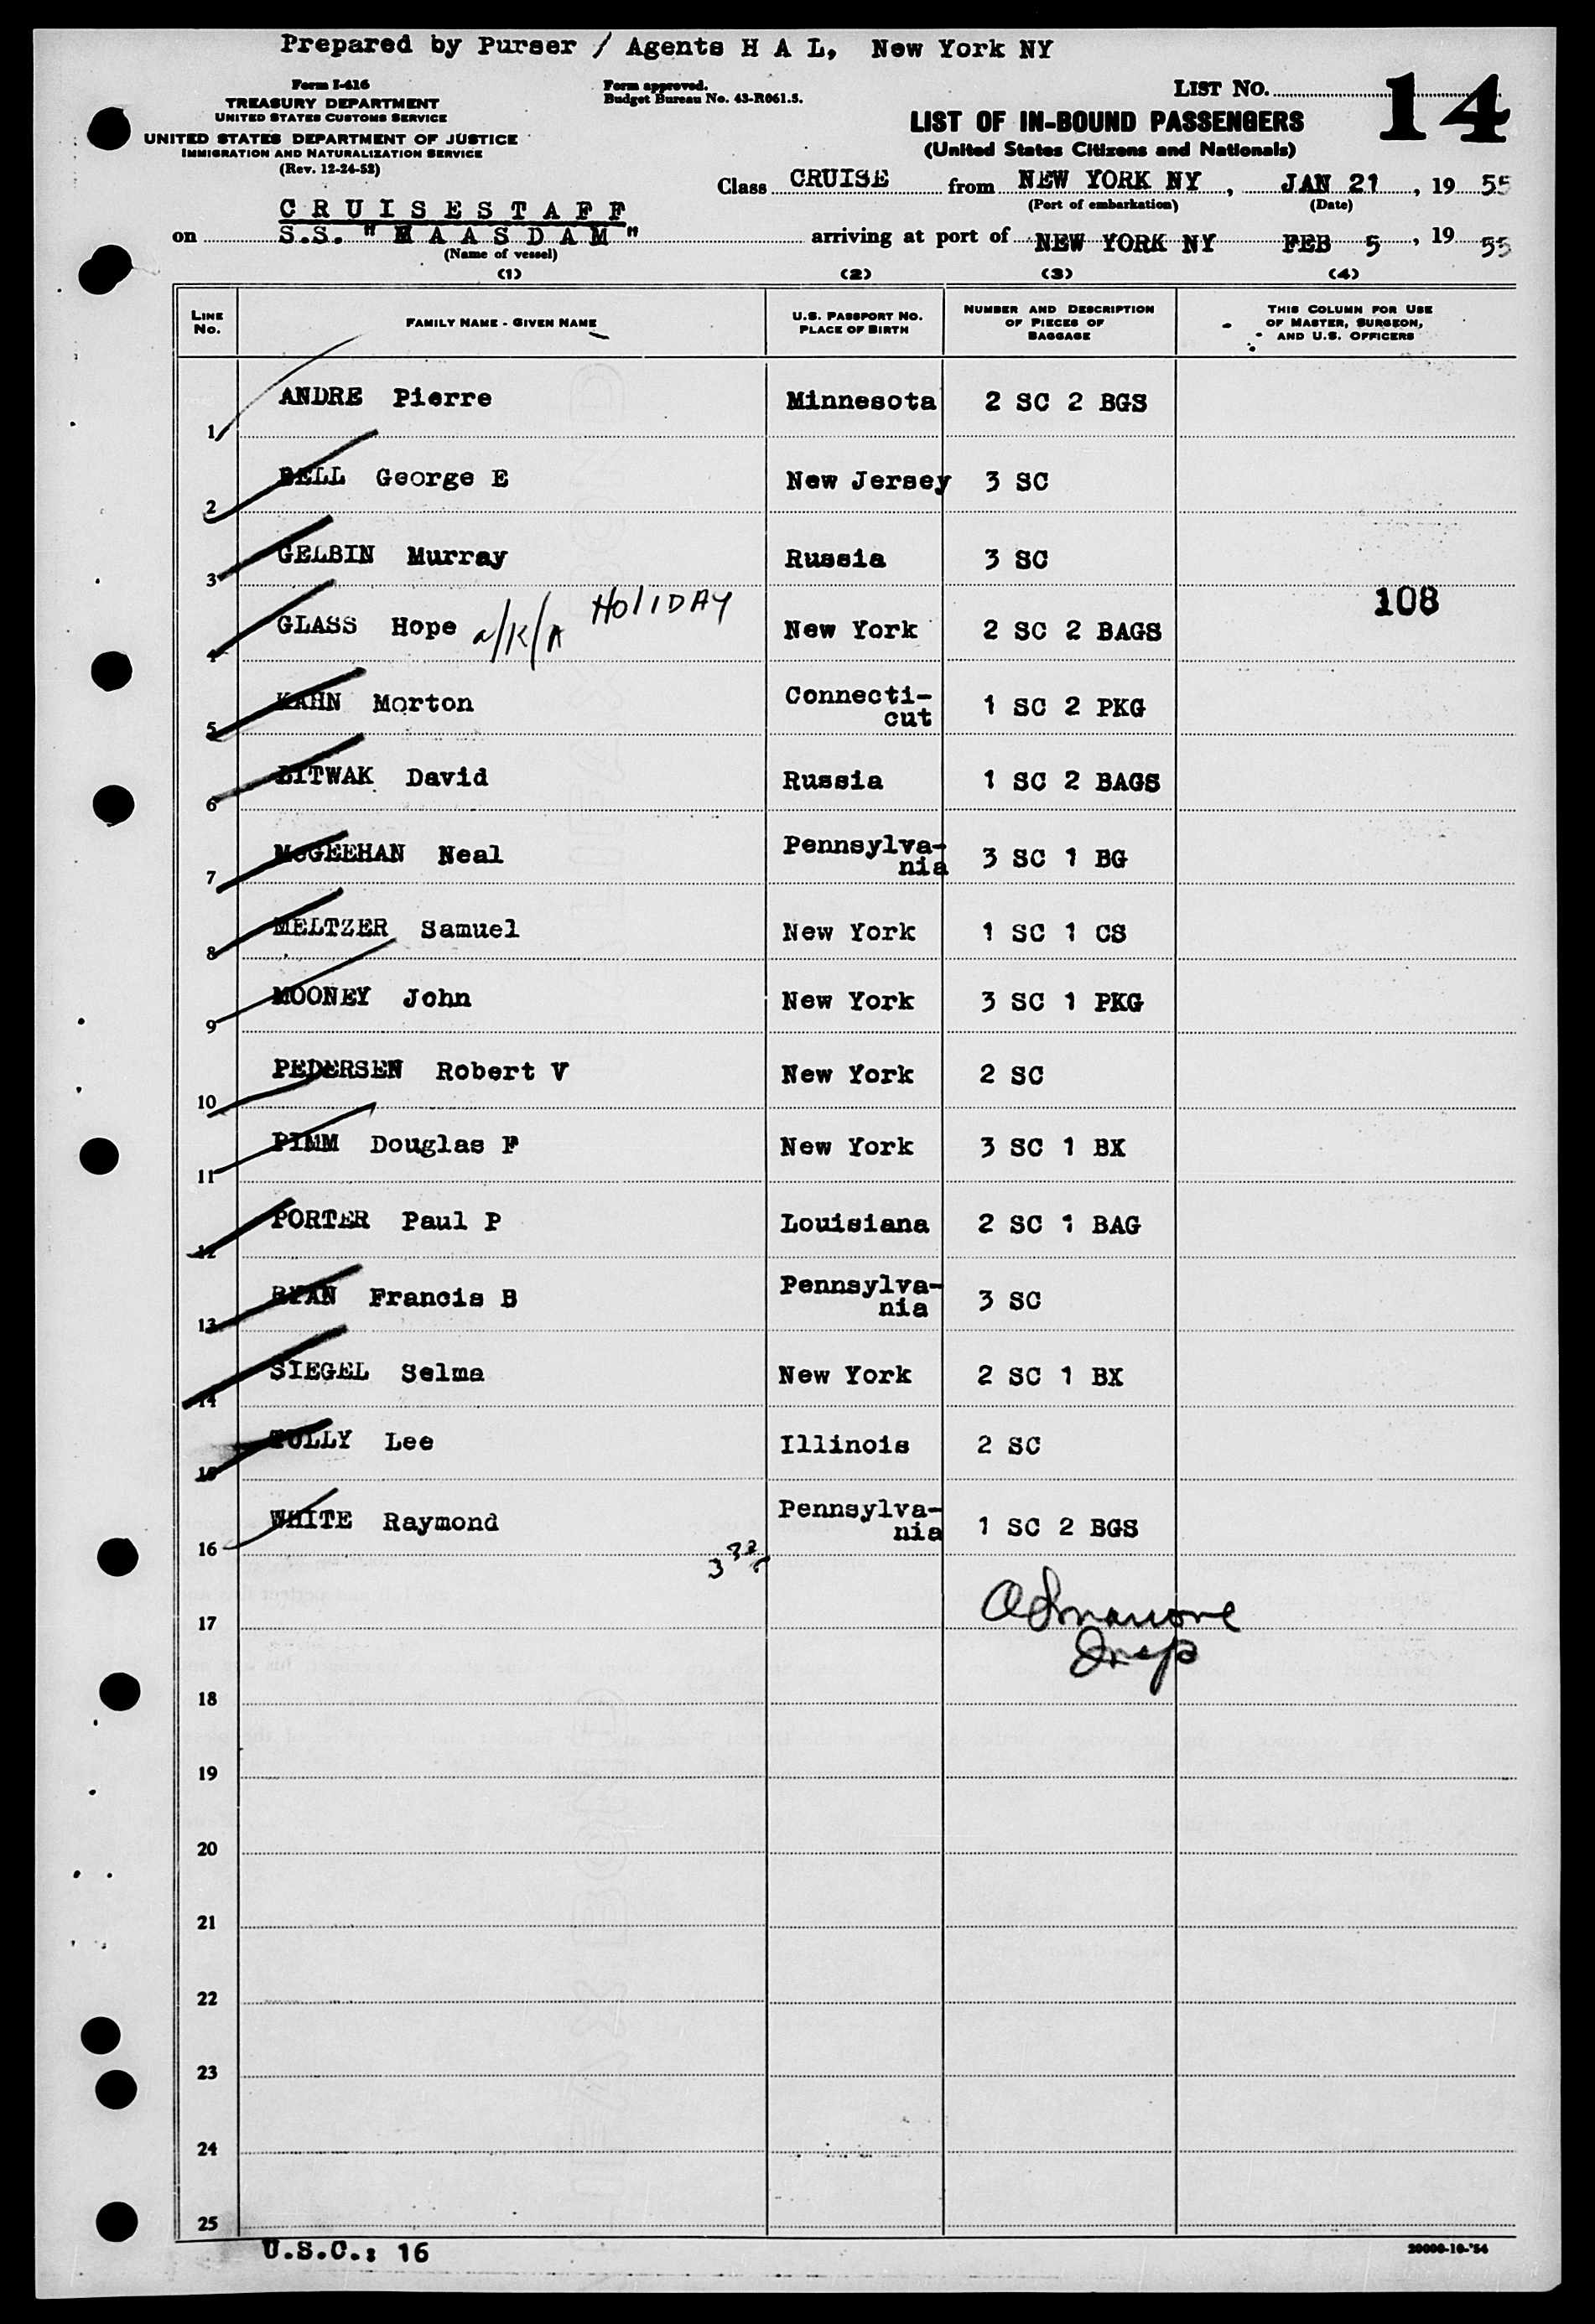 Prepared by Purser / Agents H A L, New York NY
Form I-416
TREASURY DEPARTMENT
UNITED STATES CUSTOMS SERVICE
UNITED STATES DEPARTMENT OF JUSTICE
IMMIGRATION AND NATURALIZATION SERVICE
(Rev. 12-24-52)
Form approved.
Budget Bureau No. 43-R061.5.
LIST NO. 14
LIST OF IN-BOUND PASSENGERS
(United States Citizens and Nationals)
Class CRUISE from NEW YORK NY, JAN 21, 19 55
(Port of embarkation) (Date)
C R U I S E S T A F F
on S.S. "M A A S D A M" arriving at port of NEW YORK NY FEB 5, 19 55
(Name of vessel)
(1) (2) (3) (4)
LINE NO. FAMILY NAME - GIVEN NAME U.S. PASSPORT NO. PLACE OF BIRTH NUMBER AND DESCRIPTION OF PIECES OF BAGGAGE THIS COLUMN FOR USE OF MASTER, SURGEON, AND U.S. OFFICERS
1 ANDRE Pierre Minnesota 2 SC 2 BGS
2 BELL George E New Jersey 3 SC
3 GELBIN Murray Russia 3 SC
108
4 GLASS Hope a/k/a HOLIDAY New York 2 SC 2 BAGS
5 KAHN Morton Connecti-cut 1 SC 2 PKG
6 LITWAK David Russia 1 SC 2 BAGS
7 McGEEHAN Neal Pennsylva-nia 3 SC 1 BG
8 MELTZER Samuel New York 1 SC 1 CS
9 MOONEY John New York 3 SC 1 PKG
10 PEDERSEN Robert V New York 2 SC
11 PIMM Douglas F New York 3 SC 1 BX
12 PORTER Paul P Louisiana 2 SC 1 BAG
13 RYAN Francis B Pennsylva-nia 3 SC
14 SIEGEL Selma New York 2 SC 1 BX
15 TULLY Lee Illinois 2 SC
16 WHITE Raymond Pennsylva-nia 1 SC 2 BGS
17
Insp
18
19
20
21
22
23
24
25
U.S.C.: 16
20000-10-'54